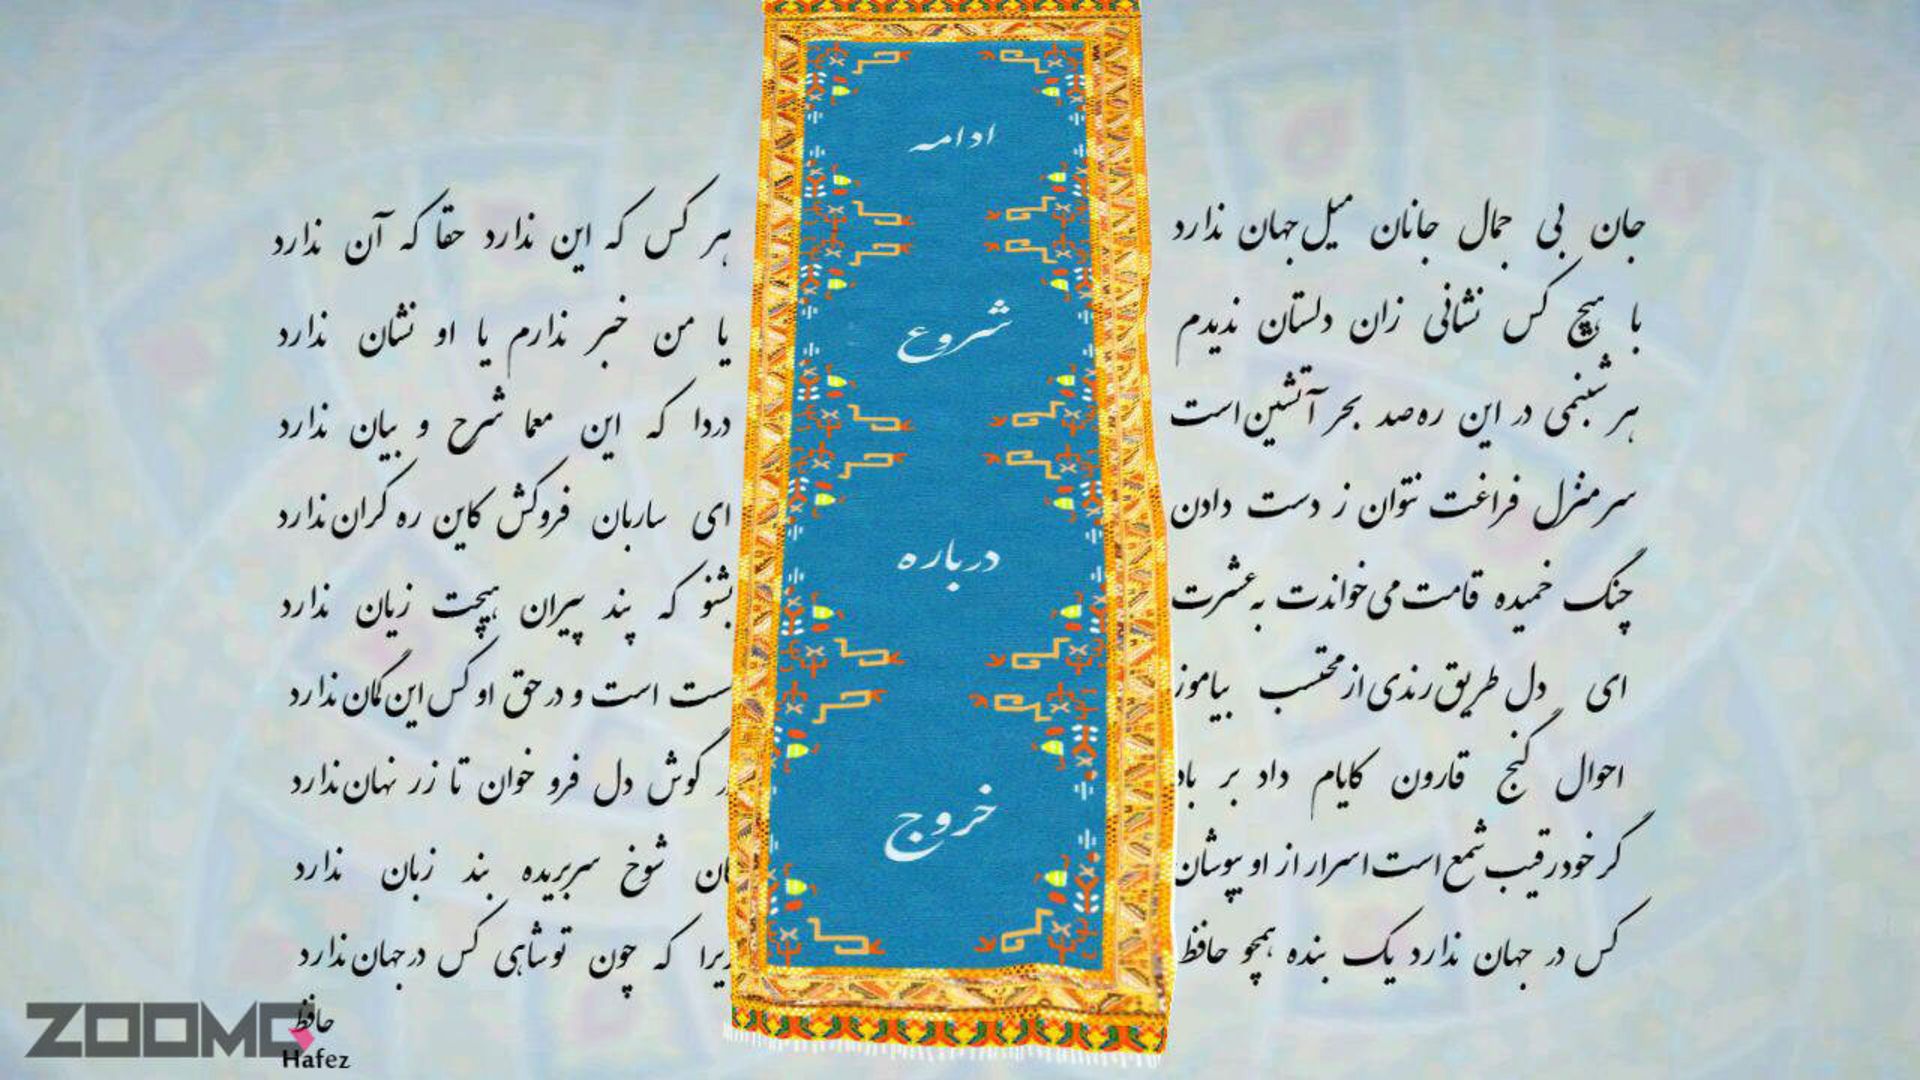 ادامه
شروع
درباره
خروج
جان بی جمال جانان میل جهان ندارد
هر کس که این ندارد حقا که آن ندارد
با هیچ کس نشانی زان دلستان ندیدم
یا من خبر ندارم یا او نشان ندارد
هر شبنمی در این ره صد بحر آتشین است
دردا که این معما شرح و بیان ندارد
سرمنزل فراغت نتوان ز دست دادن
ای ساربان فروکش کاین ره کران ندارد
چنگ خمیده قامت می‌خواندت به عشرت
بشنو که پند پیران هیچت زیان ندارد
ای دل طریق رندی از محتسب بیاموز
است و در حق او کس این گمان ندارد
احوال گنج قارون کایام داد بر باد
گوش دل فرو خوان تا زر نهان ندارد
گر خود رقیب شمع است اسرار از او بپوشان
شوخ سربریده بند زبان ندارد
کس در جهان ندارد یک بنده همچو حافظ
که چون تو شاهی کس در جهان ندارد
ZOOMG
حافظ
Hafez